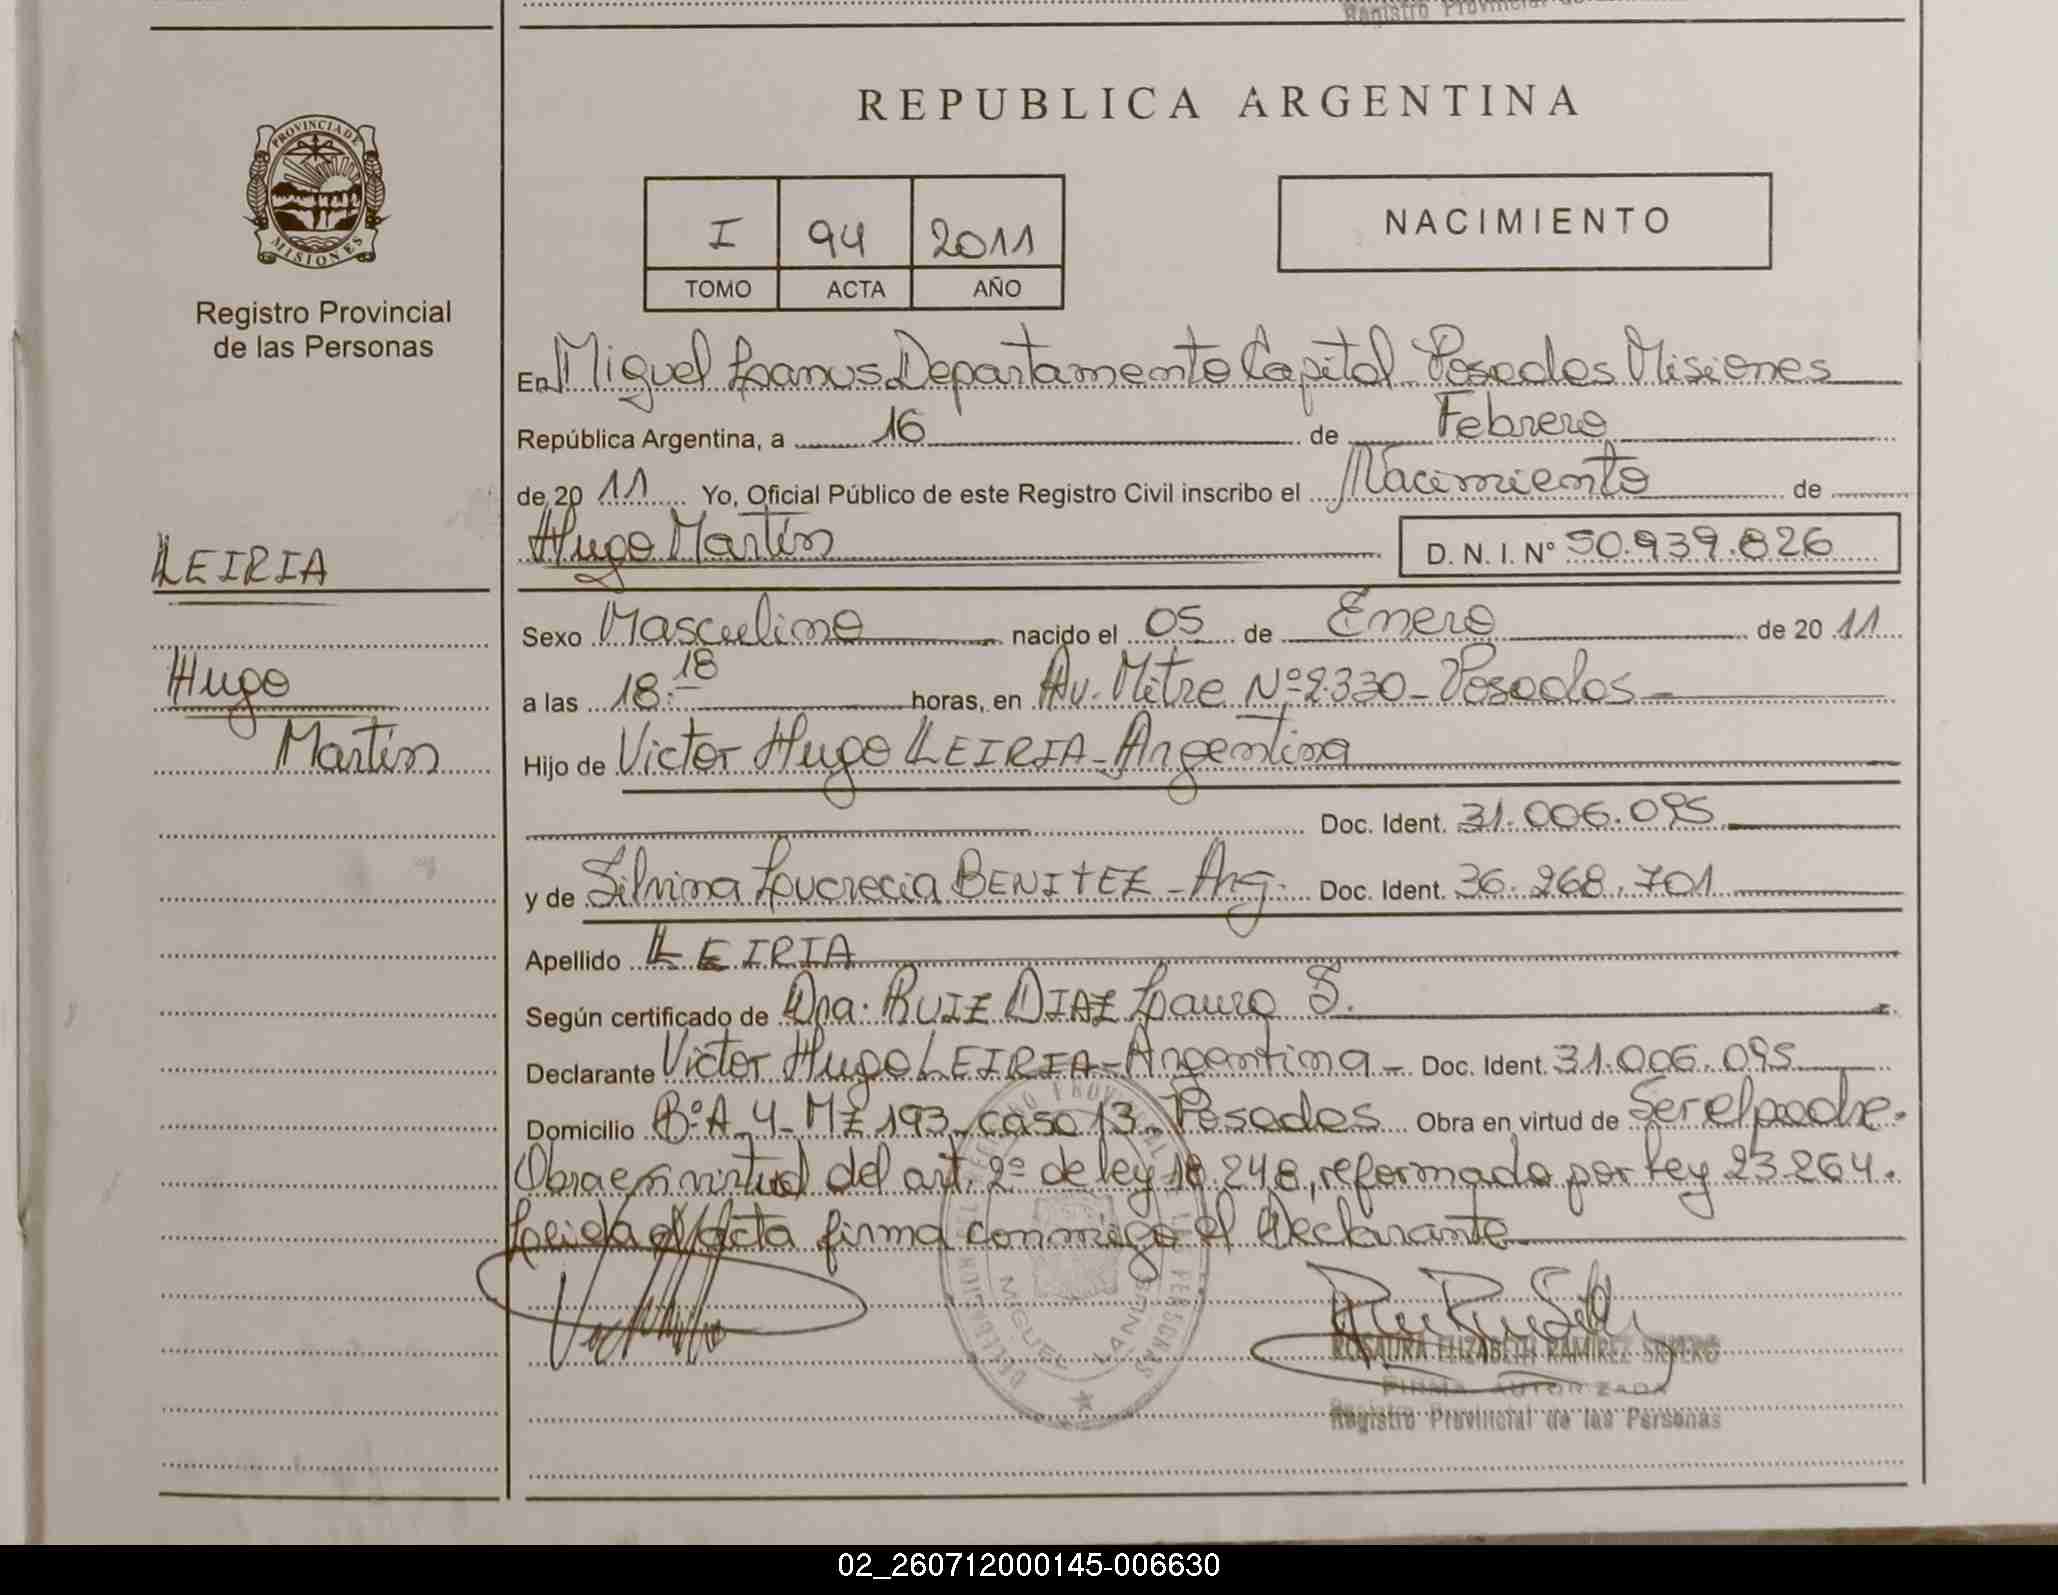 Registro Provincial de
REPUBLICA ARGENTINA
PROVINCIA DE
MISIONES
Registro Provincial
de las Personas
I 94 2011
TOMO ACTA AÑO
NACIMIENTO
En Miguel Lanus Departamento Capital Posadas Misiones
República Argentina, a 16 de Febrero
de 20 11 Yo, Oficial Público de este Registro Civil inscribo el Nacimiento de
Hugo Martín D. N. I. N° 50.939.826
LEIRIA
Hugo
Martín
Sexo Masculino nacido el 05 de Enero de 20 11
a las 18:18 horas, en Av. Mitre Nº 2330 - Posadas -
Hijo de Victor Hugo LEIRIA - Argentina
Doc. Ident. 31.006.095
y de Silvina Lucrecia BENITEZ - Arg. Doc. Ident. 36.268.701
Apellido LEIRIA
Según certificado de Dra. RUIZ DIAZ Laura S.
Declarante Victor Hugo LEIRIA - Argentina - Doc. Ident. 31.006.095
Domicilio Bº A-4- MZ 193 - casa 13 - Posadas Obra en virtud de Ser el padre.
Obra en virtud del art. 2º de ley 18.248, reformada por Ley 23.264.
Leida el Acta firma conmigo el Declarante
MIGUEL LANUS
ROSAURA ELIZABETH RAMIREZ SILVERO
FIRMA AUTORIZADA
Registro Provincial de las Personas
02_260712000145-006630